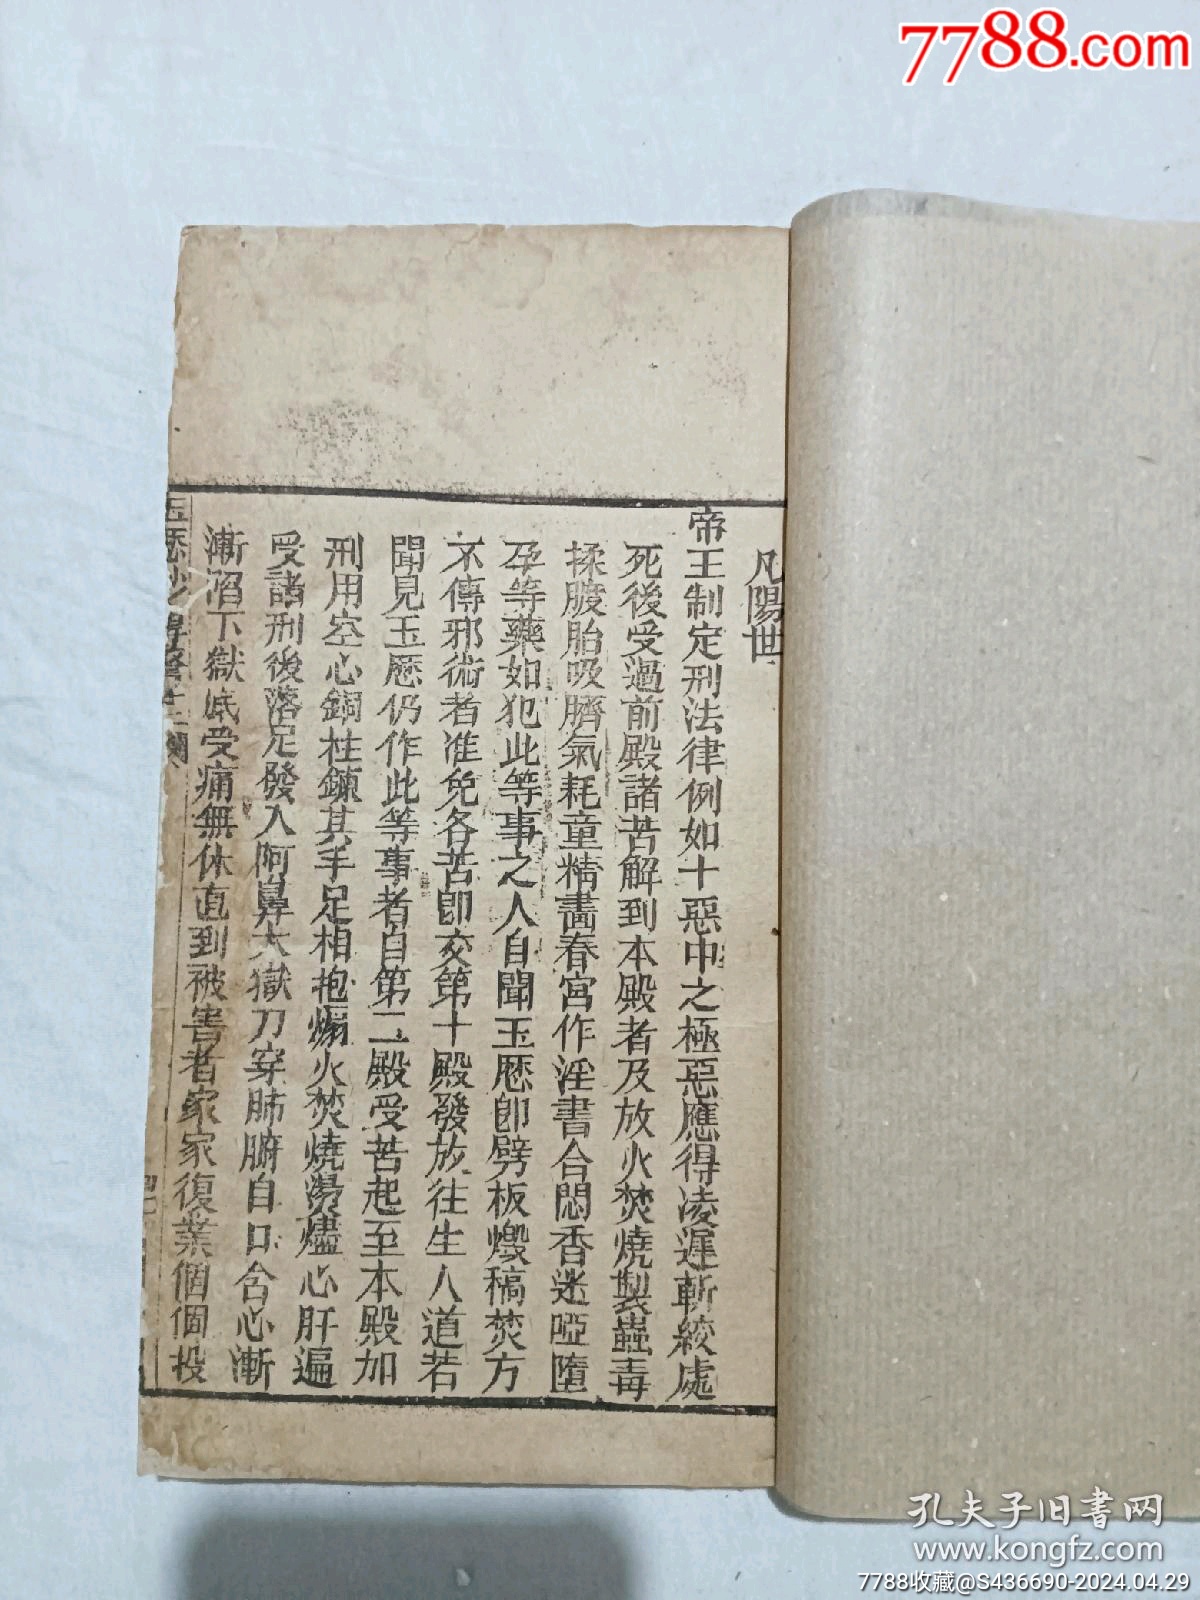 7788.com
凡陽世
帝王制定刑法律例如十惡中之極惡應得凌遲斬絞處
死後受過前殿諸苦解到本殿者及放火焚燒製蠱毒
揉腹胎吸臍氣耗童精畫春宮作淫書合悶香迷啞墮
孕等藥如犯此等事之人自聞玉厯即劈板燬稿焚方
不傳邪術者准免各苦即交第十殿發放往生人道若
聞見玉厯仍作此等事者自第二殿受苦起至本殿加
刑用空心銅柱鍊其手足相抱煽火焚燒燙燼心肝遍
受諸刑後落足發入阿鼻大獄刀穿肺腑自口含心漸
漸滔下獄底受痛無休直到被害者家家復業個個投
玉厯鈔
孔夫子旧书网
www.kongfz.com
7788收藏@S436690-2024.04.29